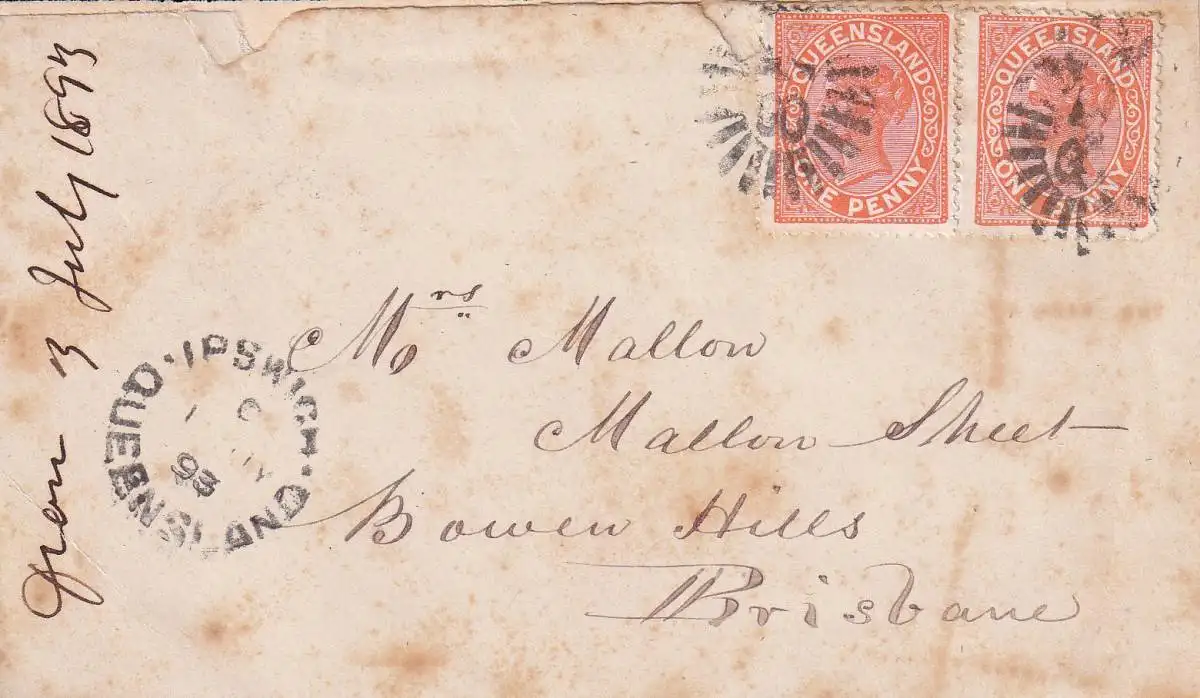 QUEENSLAND
ONE PENNY
QUEENSLAND
ONE PENNY
13 July 1893
IPSWICH
QUEENSLAND
93
Mrs Mallon
Mallon Street
Bowen Hills
Brisbane